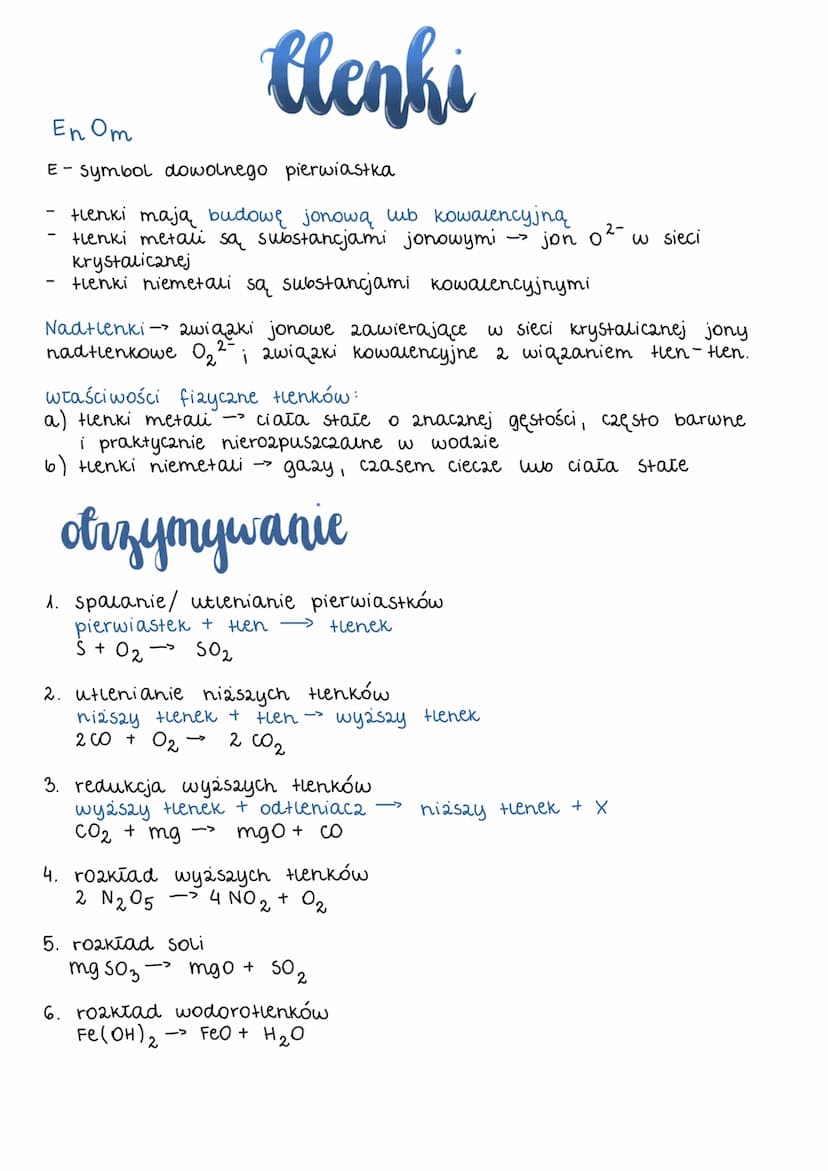 tlenki
EnOm
E - symbol dowolnego pierwiastka
- tlenki mają budowę jonową lub kowalencyjną
- tlenki metali są substancjami jonowymi → jon O²⁻ w sieci
krystalicznej
- tlenki niemetali są substancjami kowalencyjnymi
Nadtlenki → związki jonowe zawierające w sieci krystalicznej jony
nadtlenkowe O₂²⁻ i związki kowalencyjne z wiązaniem tlen-tlen.
właściwości fizyczne tlenków:
a) tlenki metali → ciała stałe o znacznej gęstości, często barwne
i praktycznie nierozpuszczalne w wodzie
b) tlenki niemetali → gazy, czasem ciecze lub ciała stałe
otrzymywanie
1. spalanie/ utlenianie pierwiastków
pierwiastek + tlen → tlenek
S + O₂ → SO₂
2. utlenianie niższych tlenków
niższy tlenek + tlen → wyższy tlenek
2 CO + O₂ → 2 CO₂
3. redukcja wyższych tlenków
wyższy tlenek + odtleniacz → niższy tlenek + X
CO₂ + mg → mgO + CO
4. rozkład wyższych tlenków
2 N₂O₅ → 4 NO₂ + O₂
5. rozkład soli
mgSO₃ → mgO + SO₂
6. rozkład wodorotlenków
Fe(OH)₂ → FeO + H₂O